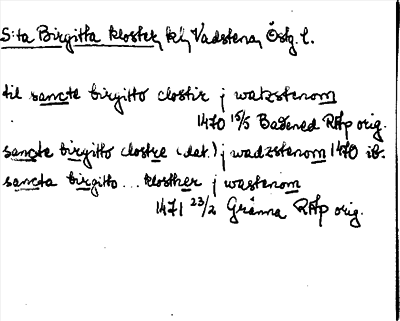 S:ta Birgitta kloster, kl, Vadstena, Östg. l.
til sancte birgitto clostir j watzstenom
1470 15/5 Badened RAp orig.
sancte birgitto clostre (dat.) j wadzstenom 1470 ib.
sancta birgitto ... klosther j wastenom
1471 23/2 Gränna RAp orig.